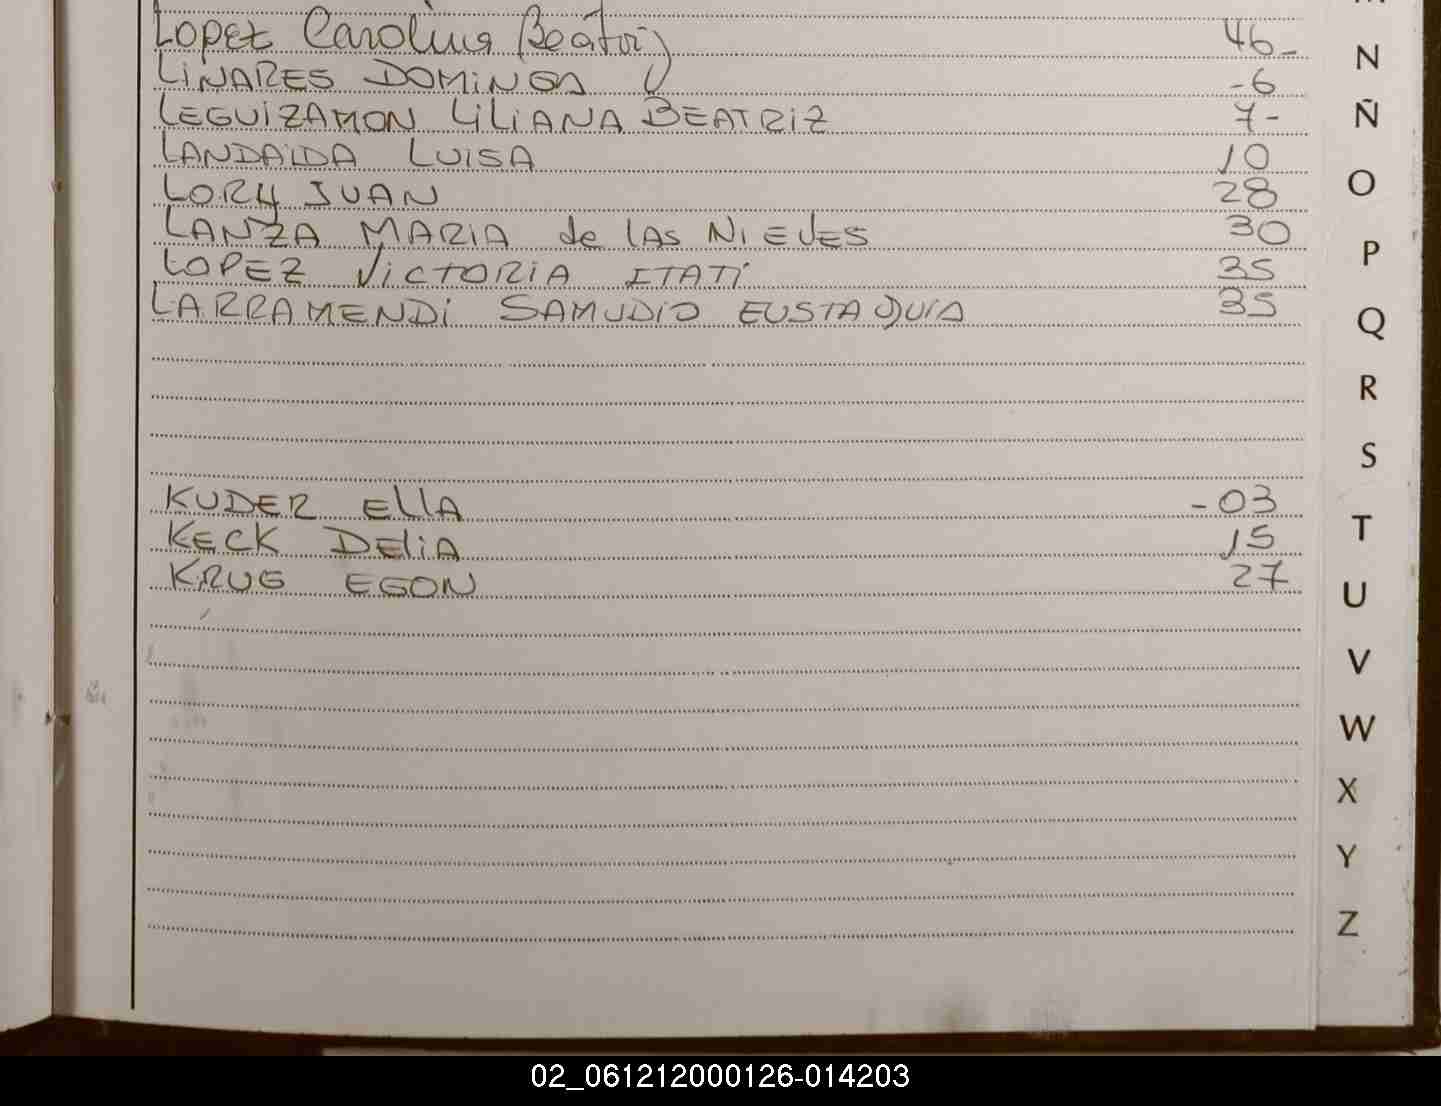 Lopez Carolina Beatriz 46-
LINARES DOMINGA -6
LEGUIZAMON LILIANA BEATRIZ 7-
LANDAIDA LUISA 10
LORY JUAN 28
LANZA MARIA de LAS NIEVES 30
LOPEZ VICTORIA ITATÍ 35
LARRAMENDI SAMUDIO EUSTAQUIA 35
KUDER ELLA -03
KECK DELIA 15
KRUG EGON 27
N
Ñ
O
P
Q
R
S
T
U
V
W
X
Y
Z
02_061212000126-014203